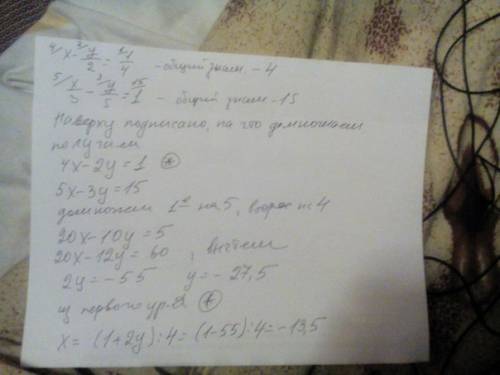 4/ x - 2/ y/2 = 1/ 1/4 - общий знам. - 4
5/ x/3 - 3/ y/5 = 15/ 1 - общий знам - 15
Наверху подписано, на что домножаем
получаем
4x - 2y = 1 (*)
5x - 3y = 15
домножаем 1е на 5, второе на 4
20x - 10y = 5
20x - 12y = 60 , вычтем
2y = -55 y = -27,5
из первого ур-я (*)
x = (1+2y):4 = (1-55):4 = -13,5